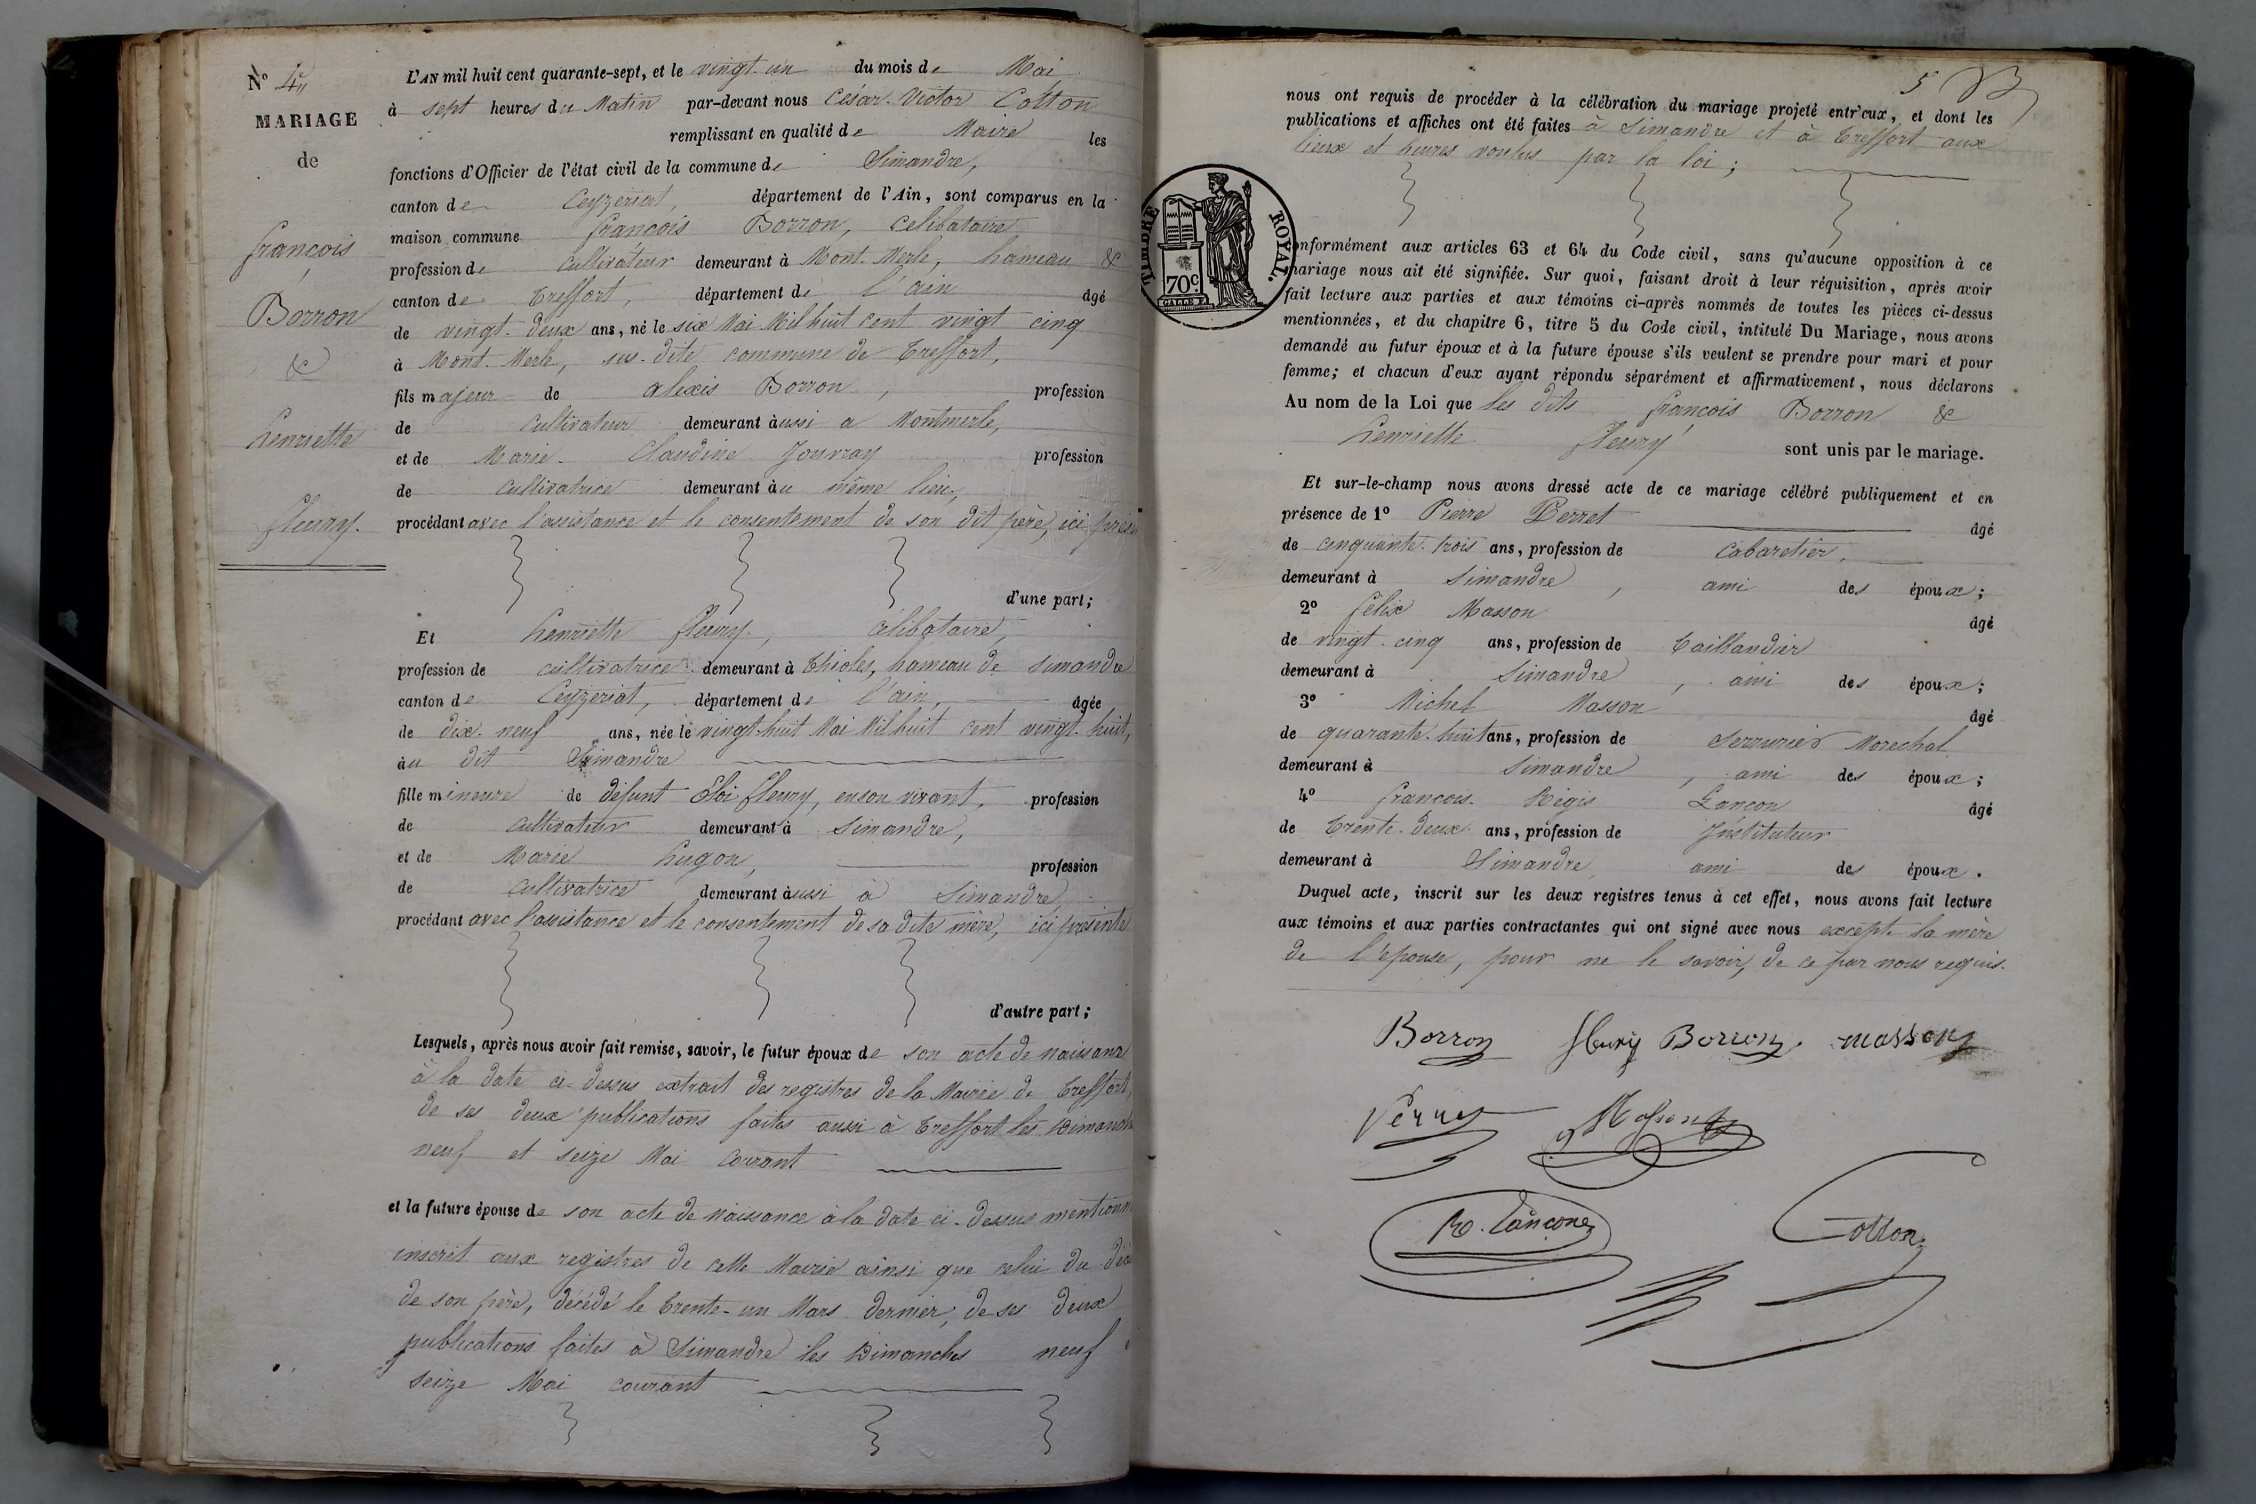 N° 4
MARIAGE
de
françois
Borron
&
henriette
fleury.
L'AN mil huit cent quarante-sept, et le vingt-un du mois de Mai
à sept heures du Matin par-devant nous César-Victor Cotton
remplissant en qualité de Maire les
fonctions d'Officier de l'état civil de la commune de Simandre,
canton de Ceyzeriat, département de l'Ain, sont comparus en la
maison commune françois Borron, celibataire
profession de cultivateur demeurant à Mont-Merle, hameau &
canton de Treffort, département de l'ain âgé
de vingt-deux ans, né le six Mai Mil huit cent vingt cinq
à Mont-Merle, sus-dite commune de Treffort,
fils majeur de alexis Borron, profession
de cultivateur demeurant aussi a Montmerle,
et de Marie-Claudine Jouvray profession
de cultivatrice demeurant au même lieu,
procédant avec l'assistance et le consentement de son dit père, ici
d'une part;
Et henriette fleury, célibataire,
profession de cultivatrice demeurant à Thioles, hameau de Simandre
canton de Ceyzeriat, département de l'ain, âgée
de dix-neuf ans, née le vingt-huit Mai Mil huit cent vingt-huit,
au dit Simandre
fille mineure de défunt Eloi fleury, en son vivant, profession
de cultivateur demeurant à Simandre,
et de Marie hugon, profession
de cultivatrice demeurant aussi à Simandre
procédant avec l'assistance et le consentement de sa dite mère, ici présente
d'autre part;
Lesquels, après nous avoir fait remise, savoir, le futur époux de son acte de naissance
à la date ci-dessus extrait des registres de la Mairie de Treffort,
de ses deux publications faites aussi à Treffort les Dimanches
neuf et seize Mai courant
et la future épouse de son acte de naissance à la date ci-dessus
inscrit aux registres de cette Mairie ainsi que celui du
de son père, décédé le trente-un Mars dernier, de ses deux
publications faites à Simandre les Dimanches neuf
seize Mai courant
5
nous ont requis de procéder à la célébration du mariage projeté entr'eux, et dont les
publications et affiches ont été faites à Simandre et à Treffort aux
lieux et heures voulus par la loi;
TIMBRE ROYAL.
70c
onformément aux articles 63 et 64 du Code civil, sans qu'aucune opposition à ce
mariage nous ait été signifiée. Sur quoi, faisant droit à leur réquisition, après avoir
fait lecture aux parties et aux témoins ci-après nommés de toutes les pièces ci-dessus
mentionnées, et du chapitre 6, titre 5 du Code civil, intitulé Du Mariage, nous avons
demandé au futur époux et à la future épouse s'ils veulent se prendre pour mari et pour
femme; et chacun d'eux ayant répondu séparément et affirmativement, nous déclarons
Au nom de la Loi que les dits françois Borron &
henriette fleury sont unis par le mariage.
Et sur-le-champ nous avons dressé acte de ce mariage célébré publiquement et en
présence de 1° Pierre Perret âgé
de cinquante-trois ans, profession de cabaretier,
demeurant à Simandre, ami des époux;
2° félix Masson âgé
de vingt-cinq ans, profession de Taillandier
demeurant à Simandre, ami des époux;
3° Michel Masson âgé
de quarante-huit ans, profession de Serrurier Marechal
demeurant à Simandre, ami des époux;
4° françois-Régis Lançon âgé
de trente-deux ans, profession de Instituteur
demeurant à Simandre, ami des époux.
Duquel acte, inscrit sur les deux registres tenus à cet effet, nous avons fait lecture
aux témoins et aux parties contractantes qui ont signé avec nous except. la mère
de l'épouse, pour ne le savoir, de ce par nous requis.
Borron fleury Borron masson
R. Lançon Cotton